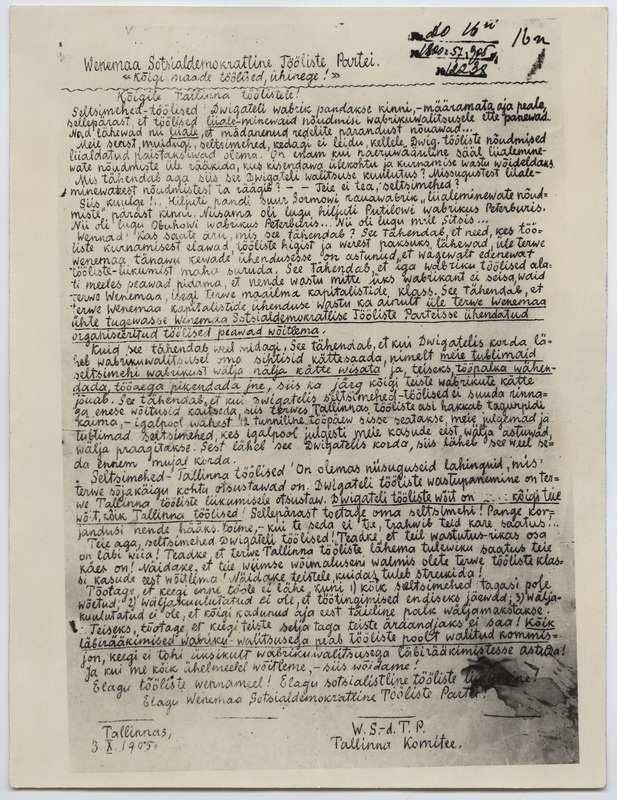 do 16 n
16 n
1800. 57, 905
12238
Wenemaa Sotsialdemokratline Tööliste Partei.
«Kõigi maade töölised, ühinege!»
Kõigile Tallinna töölistele!
Seltsimehed-töölised! Dwigateli wabrik pandakse kinni, – määramata aja peale,
sellepärast, et töölised liiale-minewaid nõudmisi wabrikuwalitsusele ette panewad.
Nad lähewad nii liiale, et mädanenud redelite parandust nõuawad...
Meie seast, muidugi, seltsimehed, kedagi ei leidu, kellele Dwig. tööliste nõudmised
liialdatud paistaksiwad olema. On enam kui naeruwääriline sääl liialemine-
wate nõudmiste üle rääkida, kus kisendawa ülekohtu ja kurnamise wastu wõideldaks.
Mis tähendab aga siis see Dwigateli walitsuse kuulutus? Missugustest liiale-
minewatest nõudmistest ta räägib? – – Teie ei tea, seltsimehed?
Siis, kuulge!.. Hiljuti pandi suur Sormowi rauawabrik „liialeminewate nõud-
miste" pärast kinni. Niisama oli lugu hiljuti Putilowi wabrikus Peterburis.
Nii oli lugu Obuhowi wabrikus Peterburis... Nii oli lugu meil Sitsis...
Wennad! Kas saate aru mis see tähendab? See tähendab, et need, kes töö-
liste kurnamisest elawad, tööliste higist ja werest paksuks lähewad, üle terwe
wenemaa tänawu kewade ühendusesse on astunud, et wägewalt edenewat
tööliste-liikumist maha suruda. See tähendab, et iga wabriku töölised ala-
ti meeles peawad pidama, et nende wastu mitte üks wabrikant ei seisa, waid
terwe Wenemaa, isegi terwe maailma kapitalistide klass. See tähendab, et
terwe Wenemaa kapitalistide ühenduse wastu ka ainult üle terwe Wenemaa
ühte tugewasse Wenemaa Sotsialdemokratlise Tööliste Parteisse ühendatud
organiseeritud töölised peawad wõitlema.
Kuid see tähendab weel midagi. See tähendab, et kui Dwigatelis korda lä-
heb wabrikuwalitsusel oma sihtisid kättesaada, nimelt meie tublimaid
seltsimehi wabrikust wälja nälja kätte wisata ja, teiseks, tööpalka wähen-
dada, tööaega pikendada jne, siis ka järg kõigi teiste wabrikute kätte
jõuab. See tähendab, et kui Dwigatelis seltsimehed-töölised ei suuda rinna-
ga enese wõitusid kaitseda, siis terwes Tallinnas tööliste asi hakkab tagurpidi
käima, – igalpool wähest 12 tunniline tööpäew sisse seatakse, meie julgemad ja
tublimad seltsimehed, kes igalpool julgesti meie kasude eest wälja astuwad,
wälja praagitakse. Sest läheb see Dwigatelis korda, siis läheb see weel se-
da ennem mujal korda.
Seltsimehed-Tallinna töölised! On olemas niisuguseid lahinguid, mis
terwe sõjakäigu kohta otsustawad on. Dwigateli tööliste wastupanemine on ter-
we Tallinna tööliste liikumisele otsustaw. Dwigateli tööliste wõit on ... kõigi üle
wõit, kõik Tallinna töölised! Sellepärast toetage oma seltsimehi! Pange kor-
jandusi nende hääks toime, – kui te seda ei tee, trahwib teid kare saatus!...
Teie aga, seltsimehed Dwigateli töölised! Teadke, et teil wastutus-rikas osa
on läbi wiia! Teadke, et terwe Tallinna tööliste lähema tulewiku saatus teie
käes on! Näidake, et teie wiimse wõimaluseni walmis olete terwe tööliste klas-
si kasude eest wõitlema! Näidake teistele, kuidas tuleb streikida!
Tõotage, et keegi enne tööle ei lähe, kuni 1) kõik seltsimehed tagasi pole
wõetud; 2) wäljakuulutatud ei ole, et töötingimised endiseks jäewad; 3) Wälja-
kuulutatud ei ole, et kõigi kadunud aja eest täieline palk wäljamakstakse.
Teiseks, tõotage, et keegi teiste selja taga teiste äraandjaks ei saa! Kõik
läbirääkimised wabriku-walitsusega peab tööliste poolt walitud kommis-
jon, keegi ei tohi üksikult wabrikuwalitsusega läbirääkimistesse astuda!
Ja kui me kõik ühelmeelel wõitleme, – siis wõidame!
Elagu tööliste wennameel! Elagu sotsialistline tööliste liikumine!
Elagu Wenemaa Sotsialdemokratline Tööliste Partei!
Tallinnas,
3 X. 1905.
W. S.-d. T. P.
Tallinna Komitee.